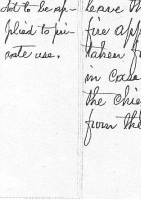 not to be ap-
plied to pri-
vate use.
leave th
fire app
taken f
in case
the Chie
from the